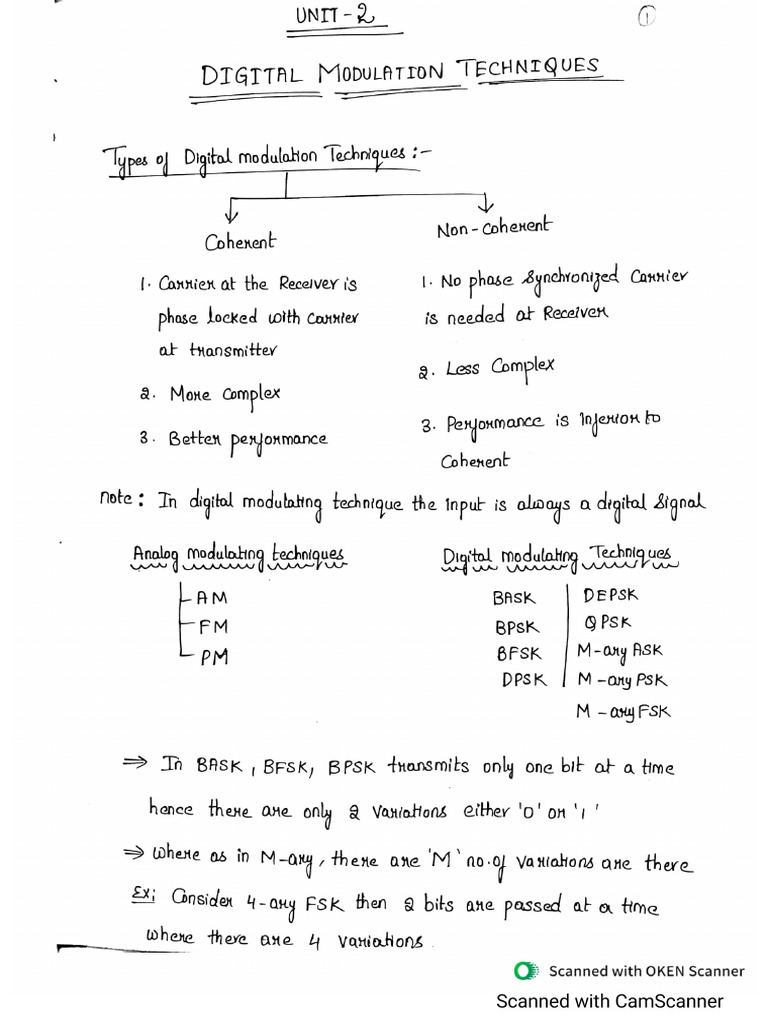 UNIT-2
1
DIGITAL MODULATION TECHNIQUES
Types of Digital modulation Techniques:-
Coherent
1. Carrier at the Receiver is
phase locked with carrier
at transmitter
2. More Complex
3. Better performance
Non-coherent
1. No phase Synchronized Carrier
is needed at Receiver
2. Less Complex
3. Performance is Inferior to
Coherent
note: In digital modulating technique the input is always a digital Signal
Analog modulating techniques
AM
FM
PM
Digital modulating Techniques
BASK
BPSK
BFSK
DPSK
DEPSK
QPSK
M-ary ASK
M-ary PSK
M-ary FSK
⇒ In BASK, BFSK, BPSK transmits only one bit at a time
hence there are only 2 variations either '0' or '1'
⇒ Where as in M-ary, there are 'M' no.of variations are there
Ex: Consider 4-ary FSK then 2 bits are passed at a time
where there are 4 variations.
Scanned with OKEN Scanner
Scanned with CamScanner